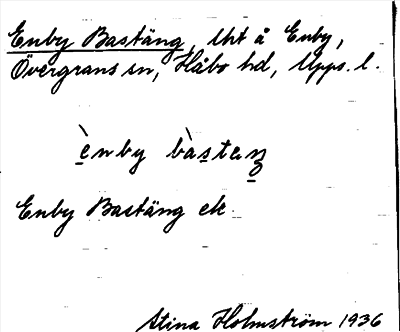 Enby Bastäng, lht å Enby,
Övergrans sn, Håbo hd, Upps. l.
ènby bàstaŋ
Enby Bastäng ek.
Stina Holmström 1936